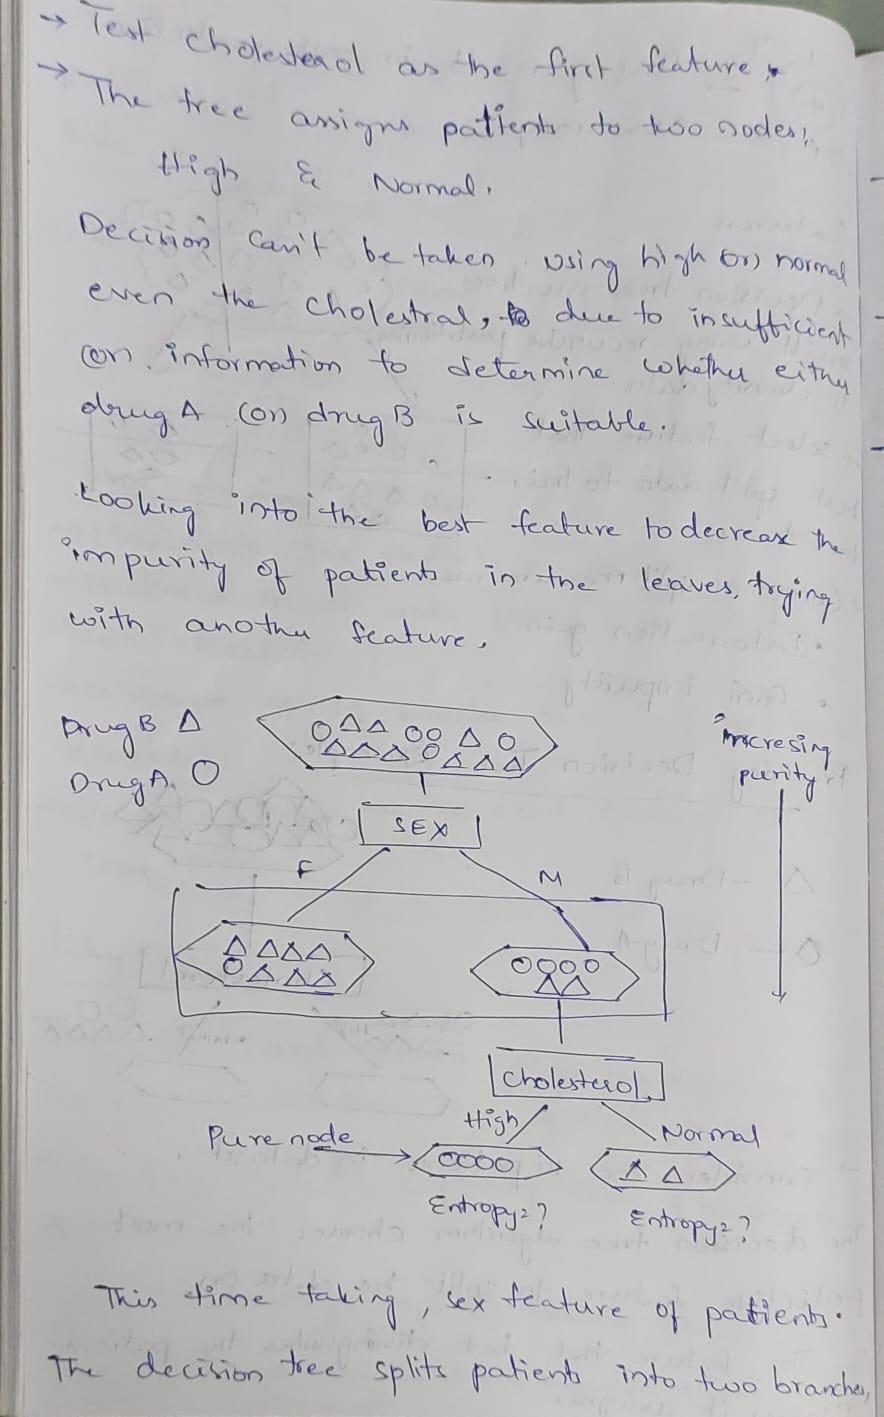 → Test cholesterol as the first feature.
→ The tree assigns patients to two nodes;
High & Normal.
Decision can't be taken using high (or) normal
even the cholestral, due to insufficient
(or) information to determine whether either
drug A (or) drug B is suitable.
Looking into the best feature to decrease the
impurity of patients in the leaves, trying
with another feature.
Drug B △
Drug A ○
Incresing
purity
SEX
F
M
Cholesterol
High
Normal
Pure node
Entropy=?
Entropy=?
This time taking, sex feature of patients.
The decision tree splits patients into two branches,